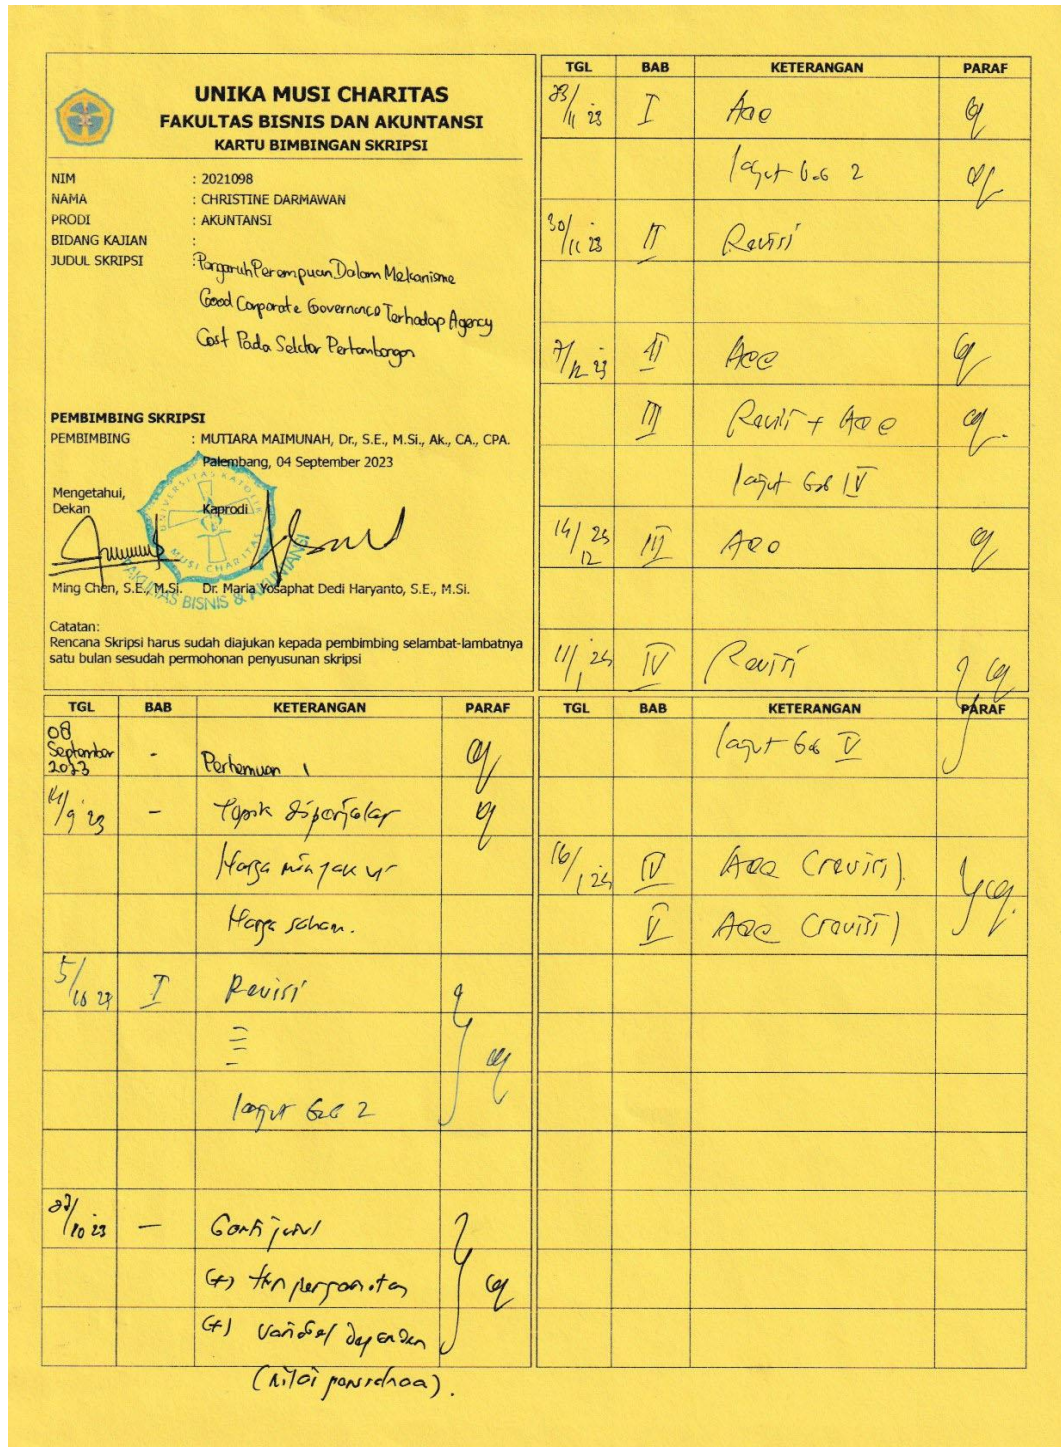 UNIKA MUSI CHARITAS
FAKULTAS BISNIS DAN AKUNTANSI
KARTU BIMBINGAN SKRIPSI
NIM : 2021098
NAMA : CHRISTINE DARMAWAN
PRODI : AKUNTANSI
BIDANG KAJIAN :
JUDUL SKRIPSI : Pengaruh Perempuan Dalam Mekanisme
Good Corporate Governance Terhadap Agency
Cost Pada Sektor Pertambangan
PEMBIMBING SKRIPSI
PEMBIMBING : MUTIARA MAIMUNAH, Dr., S.E., M.Si., Ak., CA., CPA.
Palembang, 04 September 2023
Mengetahui,
Dekan Kaprodi
UNIVERSITAS KATOLIK
MUSI CHARITAS
FAKULTAS BISNIS & AKUNTANSI
Ming Chen, S.E., M.Si. Dr. Maria Yosaphat Dedi Haryanto, S.E., M.Si.
Catatan:
Rencana Skripsi harus sudah diajukan kepada pembimbing selambat-lambatnya
satu bulan sesudah permohonan penyusunan skripsi
TGL BAB KETERANGAN PARAF
08 September 2023 - Pertemuan 1
14/9 23 - Topik diperjelas
Harga minyak
Harga saham.
5/10 23 I Revisi
lanjut bab 2
/10 23 - Ganti judul
(+) thn pengamatan
(+) variabel dependen
(nilai perusahaan).
TGL BAB KETERANGAN PARAF
23/11 23 I Acc
lanjut bab 2
30/11 23 II Revisi
7/12 23 II Acc
III Revisi + Acc
lanjut bab IV
14/12 23 III Acc
11/1 24 IV Revisi
TGL BAB KETERANGAN PARAF
lanjut bab V
16/1 24 IV Acc (revisi)
V Acc (revisi)